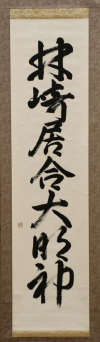 林崎居合大明神